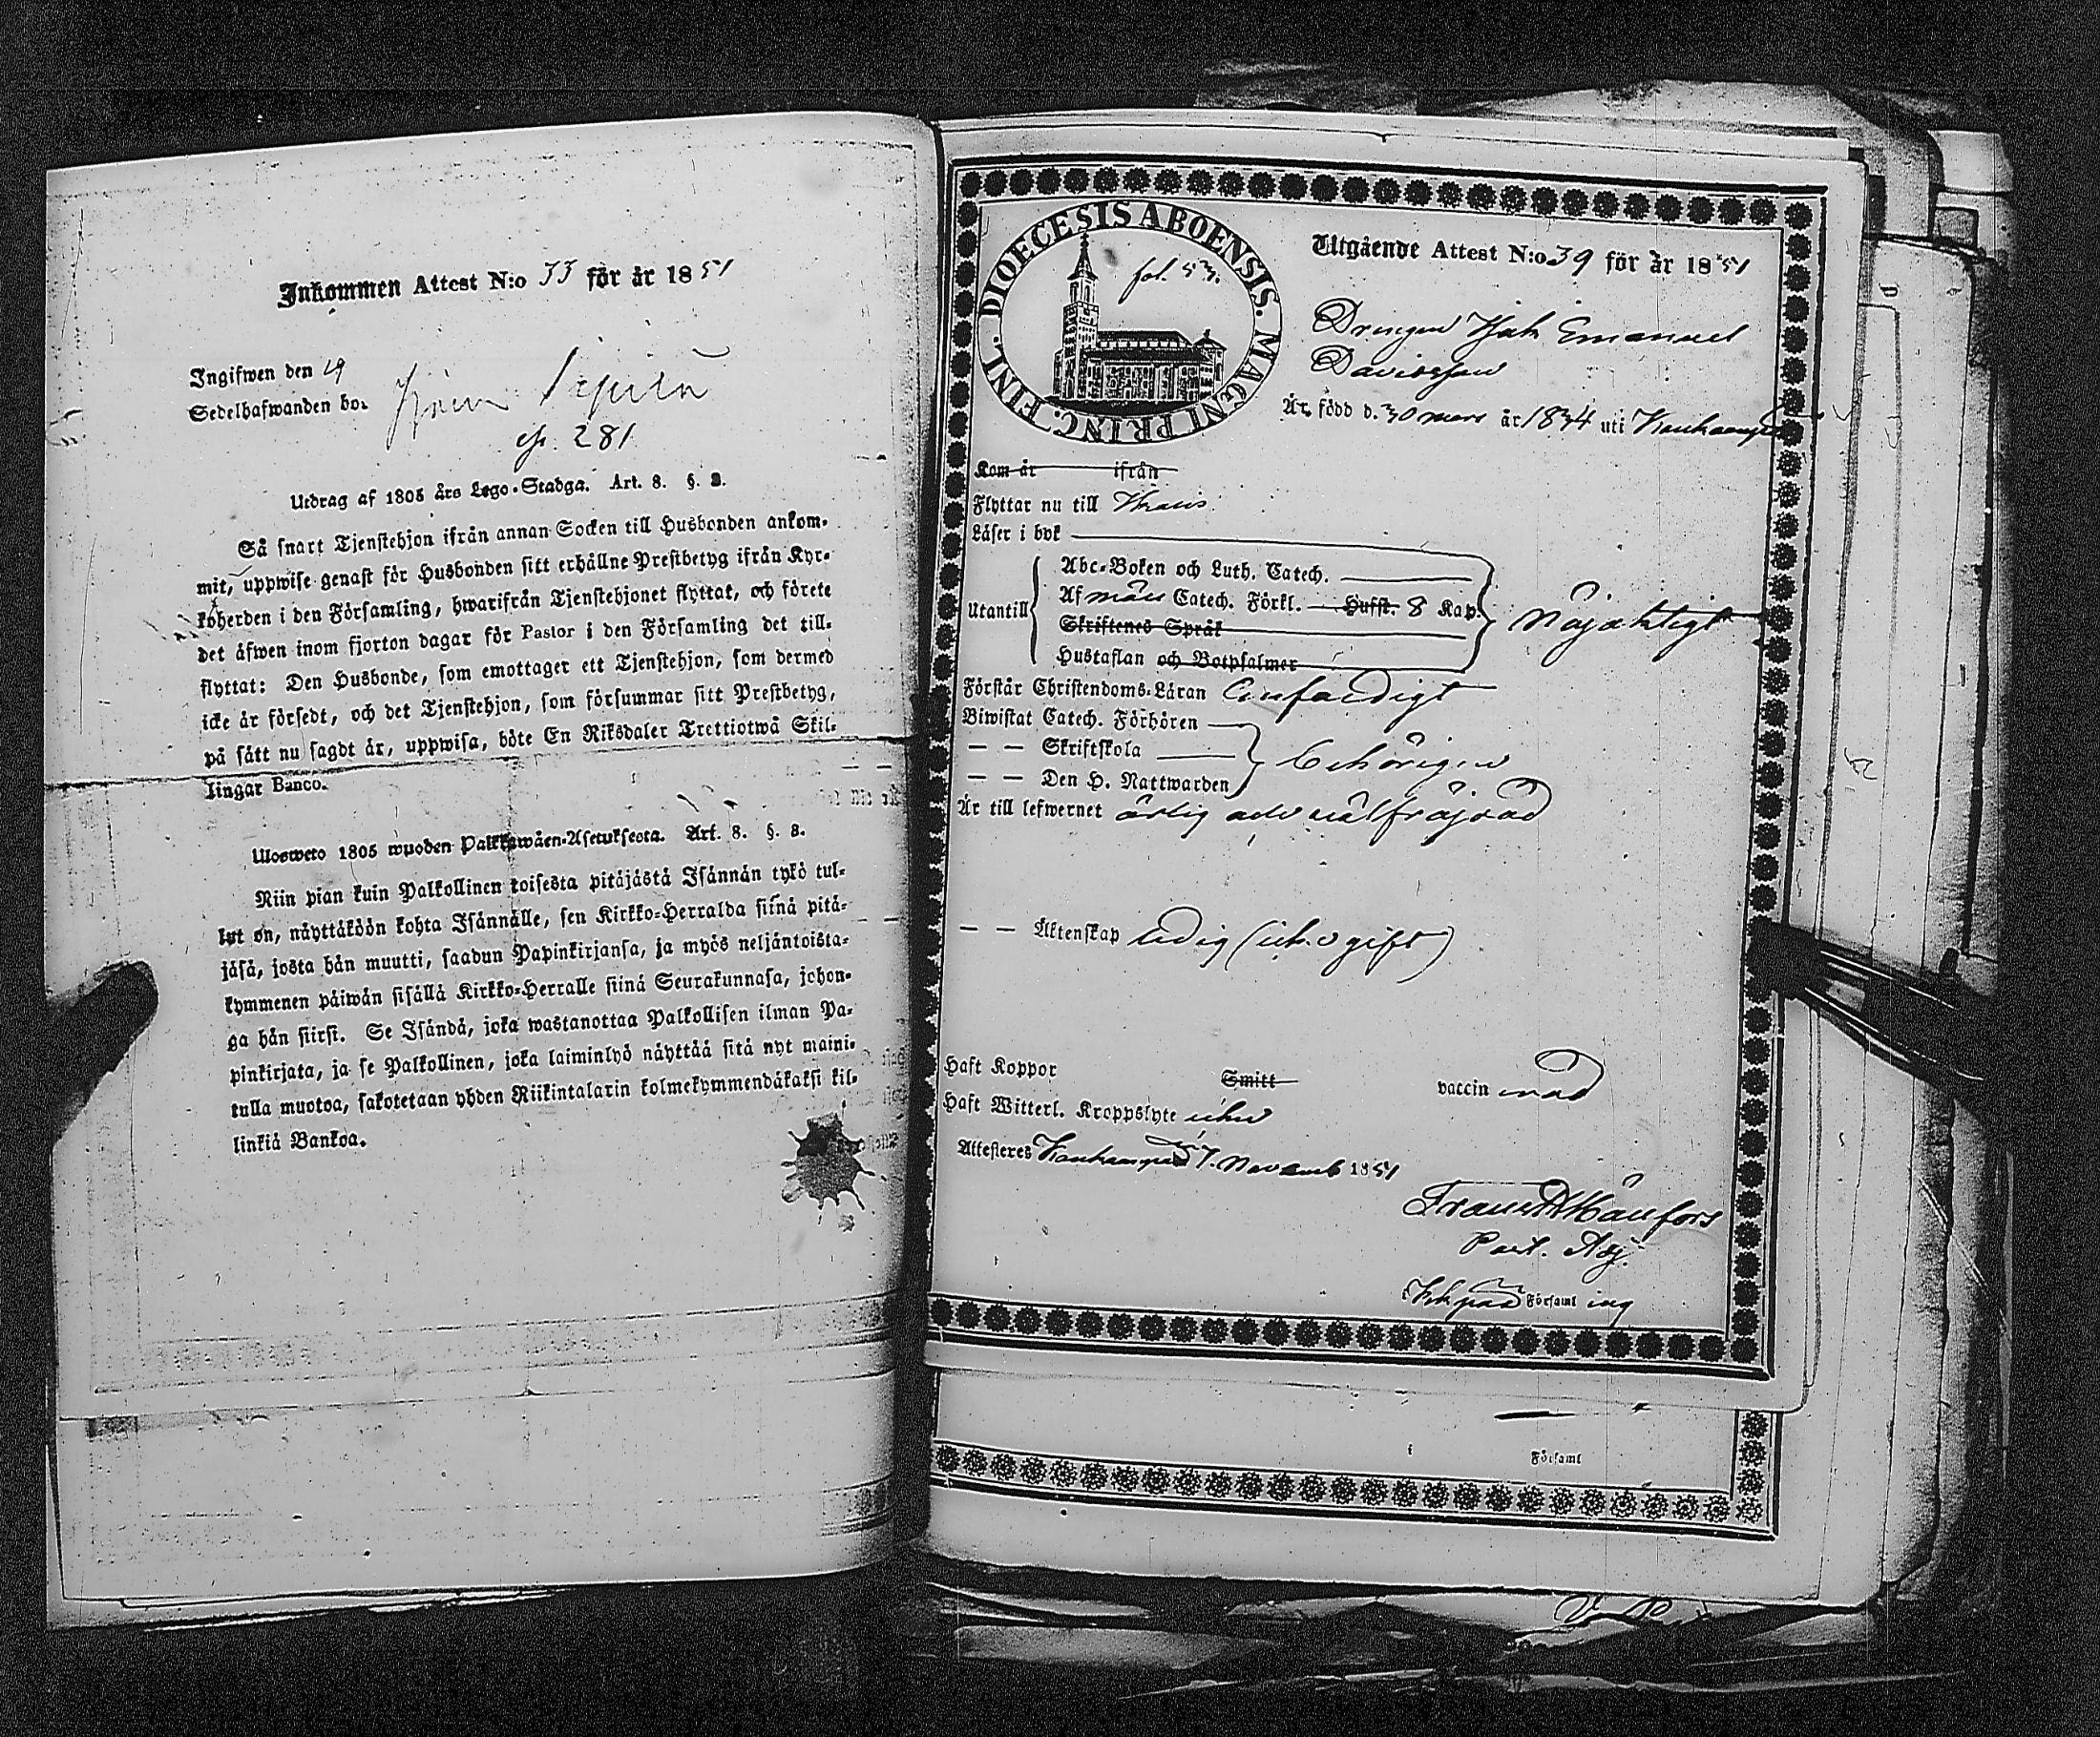 Inkommen Attest N:o 33 för år 1851
Ingifwen den 19
Sedelhafwanden bor
281
Utdrag af 1805 års Lego-Stadga. Art. 8. §. 8.
Så snart Tjenstehjon ifrån annan Socken till Husbonden ankom-
mit, uppwise genast för Husbonden sitt erhållne Prestbetyg ifrån Kyr-
koherden i den Församling, hwarifrån Tjenstehjonet flyttat, och förete
det äfwen inom fjorton dagar för Pastor i den Församling det till-
flyttat: Den Husbonde, som emottager ett Tjenstehjon, som dermed
icke är försedt, och det Tjenstehjon, som försummar sitt Prestbetyg,
på sätt nu sagdt är, uppwisa, böte En Riksdaler Trettiotwå Skil-
lingar Banco.
Ulosweto 1805 wuoden Palkkawäen-Asetuksesta. Art. 8. §. 8.
Niin pian kuin Palkollinen toisesta pitäjästä Isännän tykö tul-
lut on, näyttäköön kohta Isännälle, sen Kirkko-Herralda siinä pitä-
jäsä, josta hän muutti, saadun Papinkirjansa, ja myös neljäntoista-
kymmenen päiwän sisällä Kirkko-Herralle siinä Seurakunnasa, johon-
ga hän siirsi. Se Isändä, joka wastanottaa Palkollisen ilman Pa-
pinkirjata, ja se Palkollinen, joka laiminlyö näyttää sitä nyt maini-
tulla muotoa, sakotetaan yhden Riikintalarin kolmekymmendäkaksi kil-
linkiä Bankoa.
DIOECESIS ABOENSIS. MAGNI PRINC. FINL.
fol. 53.
Utgående Attest N:o 39 för år 1851
Drengen Isak Emanuel
Davidsson
Är född d. 30 mars år 1834 uti Kankaanpää
Kom år ifrån
Flyttar nu till
Läser i bok
Utantill
Abc-Boken och Luth. Catech.
Af Catech. Förkl. Hufst. 8 Kap.
Skriftenes Språk
Hustaflan och Botpsalmer
nöjaktigt
Förstår Christendoms-Läran enfaldigt
Biwistat Catech. Förhören
— — Skriftskola
— — Den H. Nattwarden
behörigen
Är till lefwernet ärlig och välfräjdad
— — Äktenskap ledig (icke gift)
Haft Koppor Smitt vaccinerad
Haft Witterl. Kroppslyte icke
Attesteres Kankaanpää d. 7. Novemb 1851
Past. Adj.
i Församling
i Församl